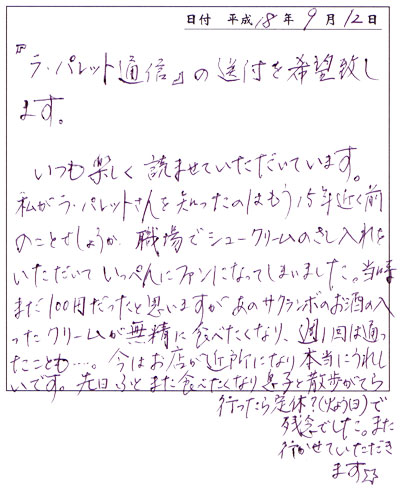 日付 平成18年9月12日
『ラ・パレット通信』の送付を希望致し
ます。
いつも楽しく読ませていただいています。
私がラ・パレットさんを知ったのはもう15年近く前
のことでしょうか 職場でシュークリームのさし入れを
いただいていっぺんにファンになってしまいました。当時
まだ100円だったと思いますがあのサクランボのお酒の入
ったクリームが無精に食べたくなり、週1回は通っ
たことも…。今はお店が近所になり本当にうれし
いです。先日ふとまた食べたくなり息子と散歩がてら
行ったら定休?(火よう日)で
残念でした。また
行かせていただき
ます